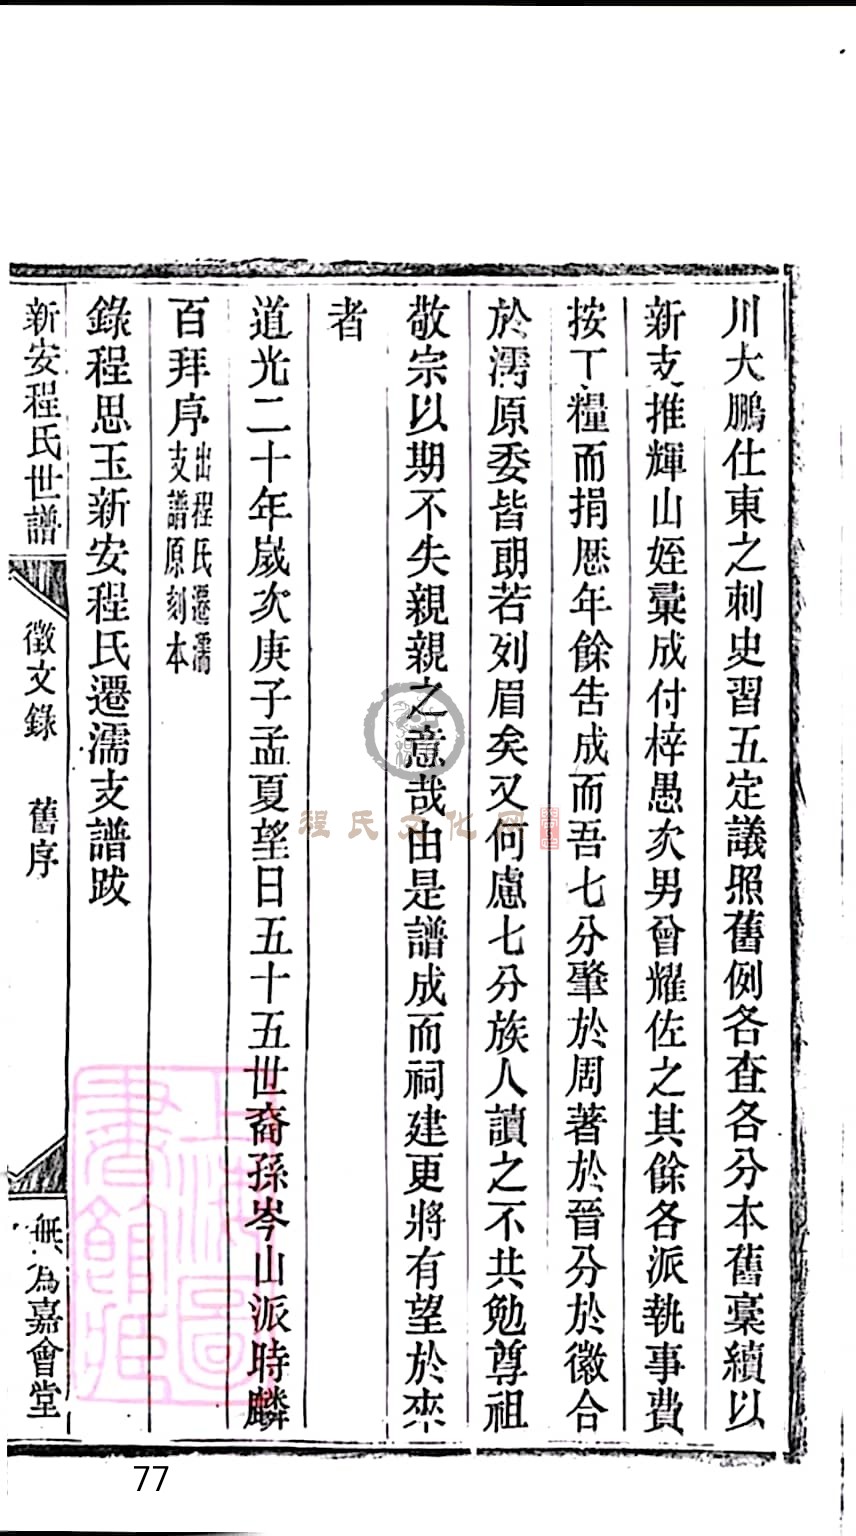 川大鵬仕東之刺史習五定議照舊例各查各分本舊稾續以
新支推輝山姪彚成付梓愚次男曾耀佐之其餘各派執事費
按丁糧而捐厯年餘告成而吾七分肇於周著於晉分於徽合
於濡原委皆朗若列眉矣又何慮七分族人讀之不共勉尊祖
敬宗以期不失親親之意哉由是譜成而祠建更將有望於來
者
道光二十年歲次庚子孟夏望日五十五世裔孫岑山派時麟
百拜序
出程氏遷濡
支譜原刻本
錄程思玉新安程氏遷濡支譜跋
新安程氏世譜
徵文錄
舊序
無為嘉會堂
程氏文化网
上海圖書館藏
77